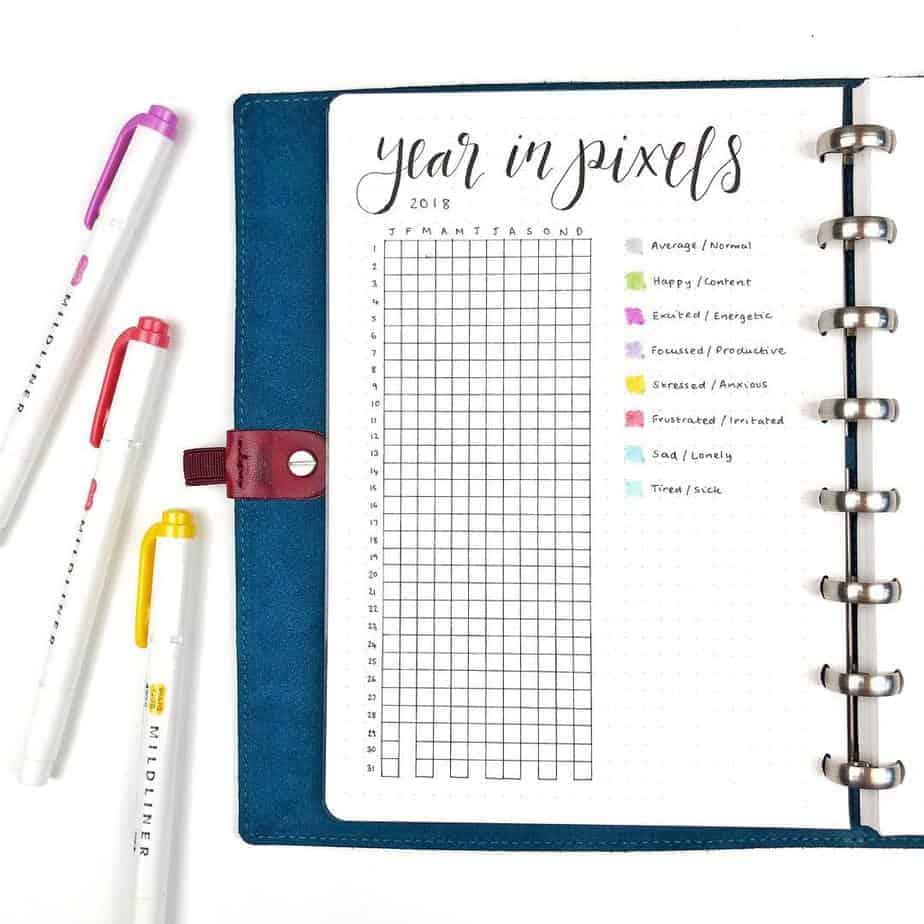 year in pixels
2018
J F M A M J J A S O N D
1
2
3
4
5
6
7
8
9
10
11
12
13
14
15
16
17
18
19
20
21
22
23
24
25
26
27
28
29
30
31
Average / Normal
Happy / Content
Excited / Energetic
Focussed / Productive
Stressed / Anxious
Frustrated / Irritated
Sad / Lonely
Tired / Sick
MILDLINER
MILDLINER
MILDLINER